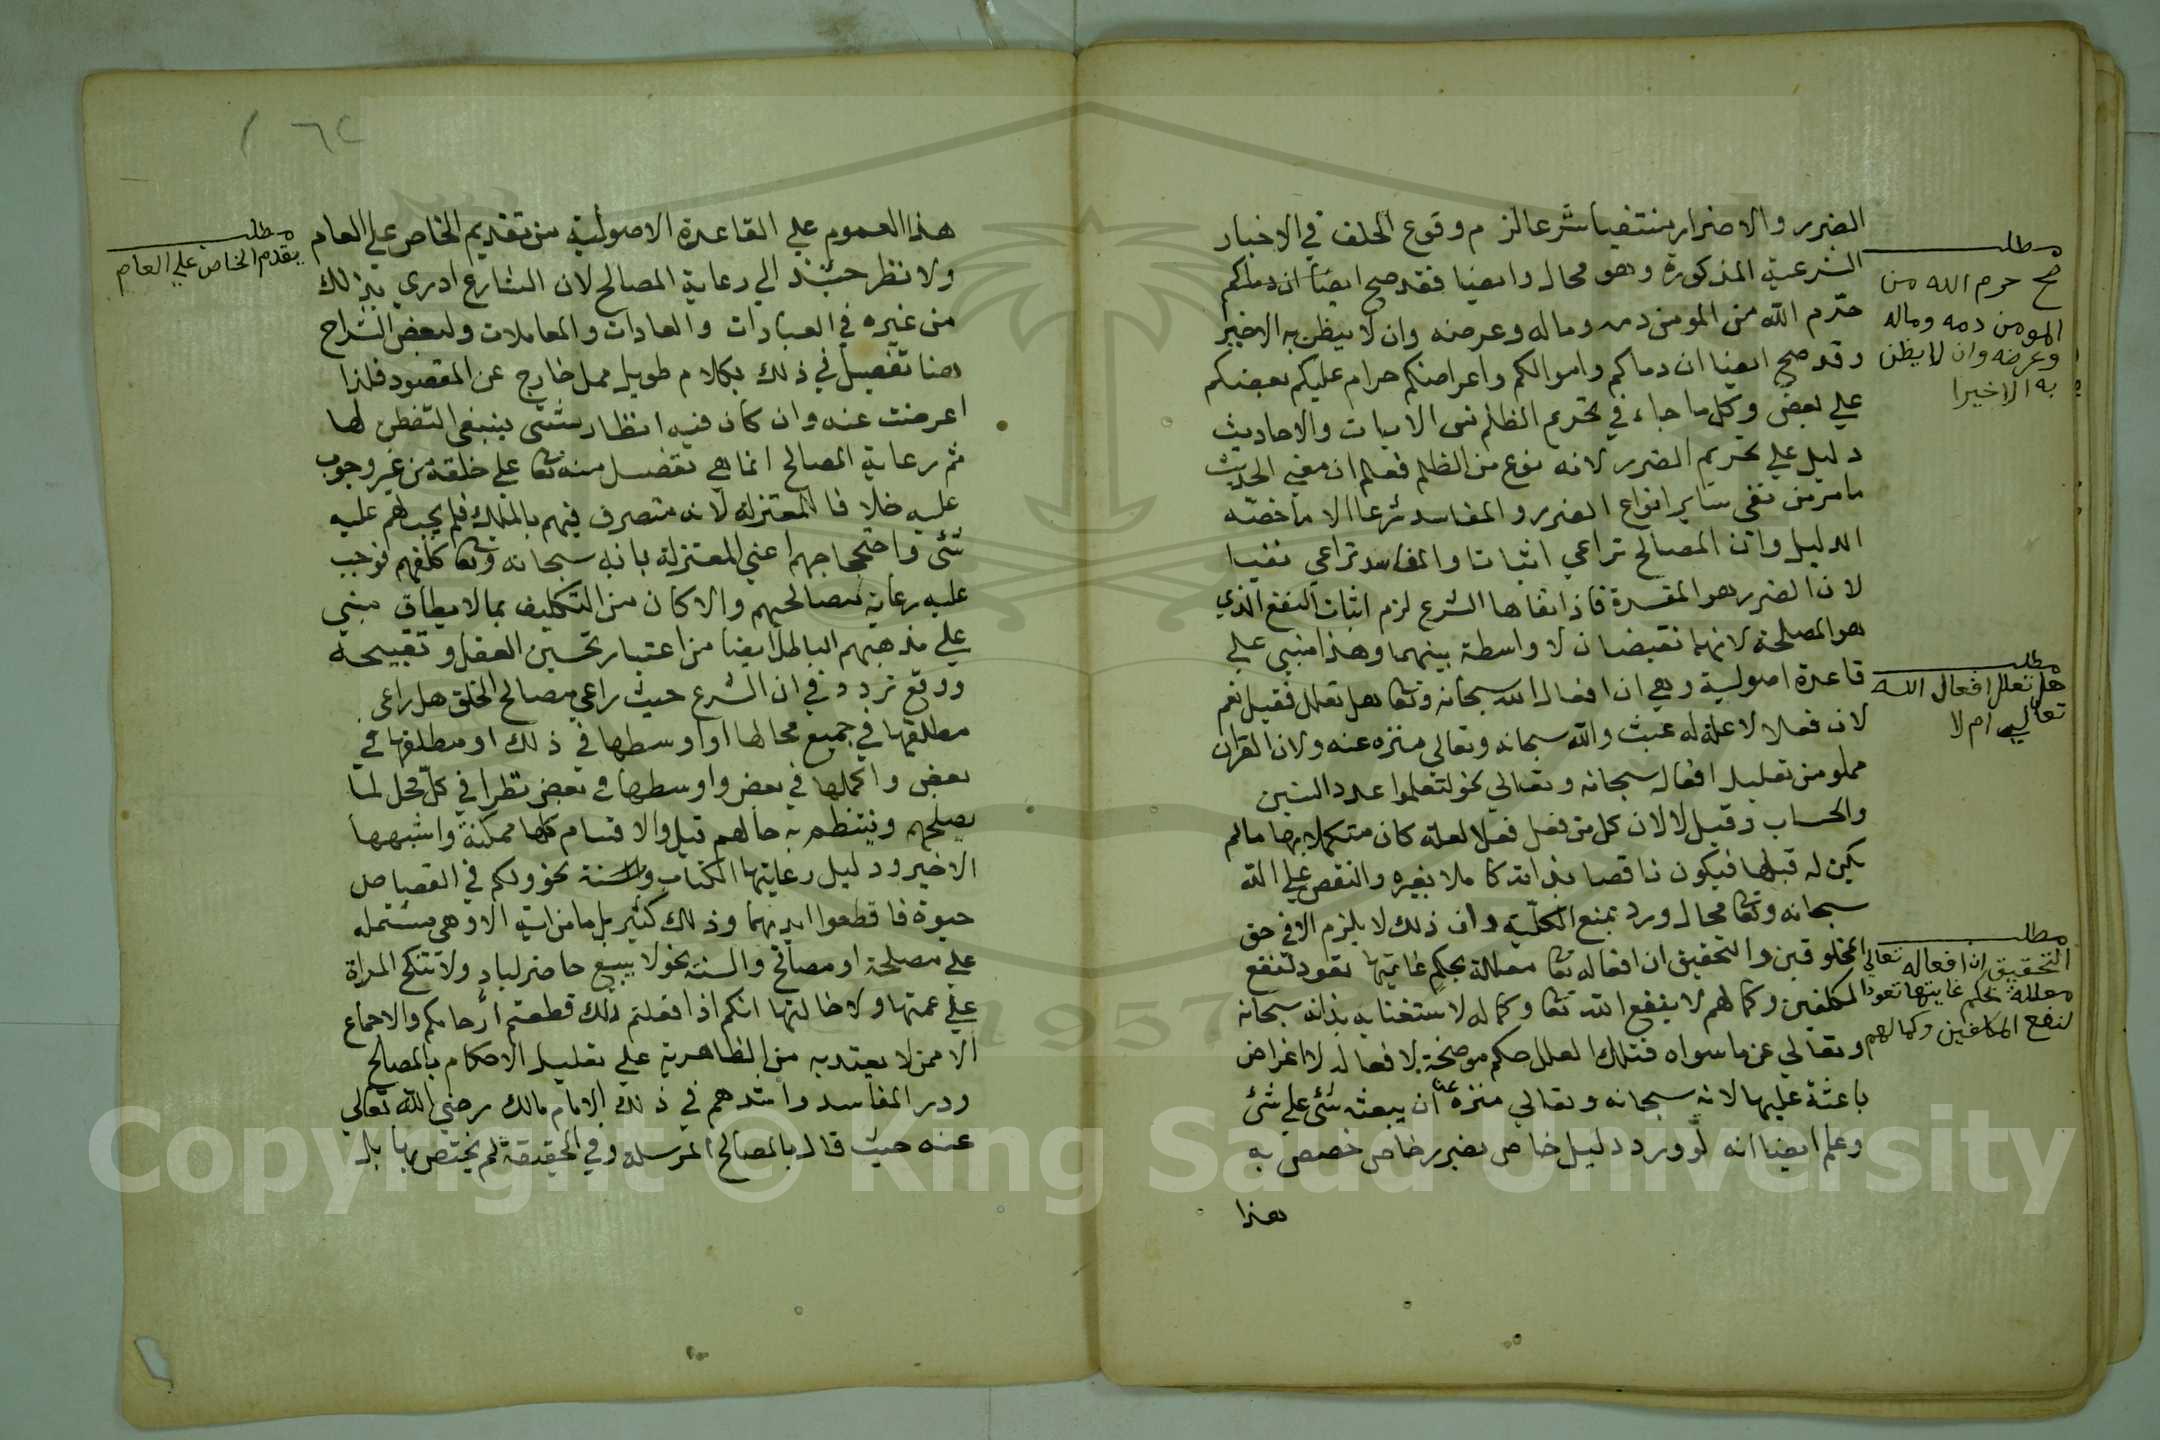 الضرر والاضرار منتفيا شرعا لزم وقوع الخلف في الاخبار
الشرعية المذكورة وهو محال وايضا فقد صح ايضا ان دماكم
حرم الله من المومن دمه وماله وعرضه وان لا يظن به الا خير
وقد صح ايضا ان دماكم واموالكم واعراضكم حرام عليكم بعضكم
علي بعض وكل ما جاء في تحريم الظلم من الايات والاحاديث
دليل علي تحريم الضرر لانه نوع من الظلم فعلم ان معني الحديث
ما مر من نفي ساير انواع الضرر والمفاسد شرعا الا ما خصه
الدليل وان المصالح تراعي اثباتا والمفاسد تراعي نفيا
لان الضرر هو المفسدة فاذا نفاها الشرع لزم اثبات النفع الذي
هو المصلحة لانهما نقيضان لا واسطة بينهما وهذا مبني علي
قاعدة اصولية وهي ان افعال الله سبحانه وتعا هل تعلل فقيل نعم
لان فعلا لا علة له عبث والله سبحانه وتعالي منزه عنه ولان القران
مملو من تعليل افعاله سبحانه وتعالي نحو لتعلموا عدد السنين
والحساب وقيل لا لان كل من فعل فعلا لعلة كان متكملا بها ما لم
يكن له قبلها فيكون ناقصا بذاته كاملا بغيره والنقص علي الله
سبحانه وتعا محال ورد بمنع الكلية وان ذلك لا يلزم الا في حق
المخلوقين والتحقيق ان افعاله تعا معللة بحكم غايتها تعود لنفع
المكلفين وكمالهم لا ينفع الله تعا وكماله لاستغنايه بذاته سبحانه
وتعالي عن ما سواه فتلك العلل حكم موضحة لافعاله لا اغراض
باعثة عليها لانه سبحانه وتعالي منزه عن ان يبعثه شئ علي شئ
وعلم ايضا انه لو ورد دليل خاص بضرر خاص خصص به
هذا
مطلب
صح حرم الله من
المومن دمه وماله
وعرضه وان لا يظن
به الا خيرا
مطلب
هل تعلل افعال الله
تعالي ام لا
مطلب
التحقيق ان افعاله تعالي
معللة بحكم غايتها تعود
لنفع المكلفين وكمالهم
هذا العموم علي القاعدة الاصولية من تقديم الخاص علي العام
ولا نظر حينئذ الي رعاية المصالح لان الشارع ادري بذلك
من غيره في العبادات والعادات والمعاملات ولبعض الشراح
هنا تفصيل في ذلك بكلام طويل ممل خارج عن المقصود فلذا
اعرضت عنه وان كان فيه انظار شتى ينبغي التفطن لها
ثم رعاية المصالح انما هي تفضل منه تعا علي خلقه من غير وجوب
عليه خلافا للمعتزلة لانه متصرف فيهم بالملك فلم يجب لهم عليه
شئ واحتجاجهم اعني المعتزلة بانه سبحانه وتعا كلفهم فوجب
عليه رعاية مصالحهم والا كان من التكليف بما لا يطاق مبني
علي مذهبهم الباطل ايضا من اعتبار تحسين العقل وتقبيحه
ووقع تردد في ان الشرع حيث راعي مصالح الخلق هل راعى
مطلقها في جميع محالها او اوسطها في ذلك او مطلقها في
بعض واكملها في بعض واوسطها في بعض نظرا في كل محل لما
يصلحهم وينتظم به حالهم قيل والاقسام كلها ممكنة واشبهها
الاخير ودليل رعايتها الكتاب والسنة نحو ولكم في القصاص
حيوة فاقطعوا ايديهما وذلك كثير بل ما من اية الا وهي مشتملة
علي مصلحة او مصالح والسنة نحو لا يبيع حاضر لباد ولا تنكح المراة
علي عمتها ولا خالتها انكم اذا فعلتم ذلك قطعتم ارحامكم والاجماع
الا ممن لا يعتد به من الظاهرية علي تعليل الاحكام بالمصالح
ودرء المفاسد واشدهم في ذلك الامام مالك رضي الله تعالي
عنه حيث قال بالمصالح المرسلة وفي الحقيقة لم يختص بها بل
مطلب
يقدم الخاص علي العام
Copyright © King Saud University
1957